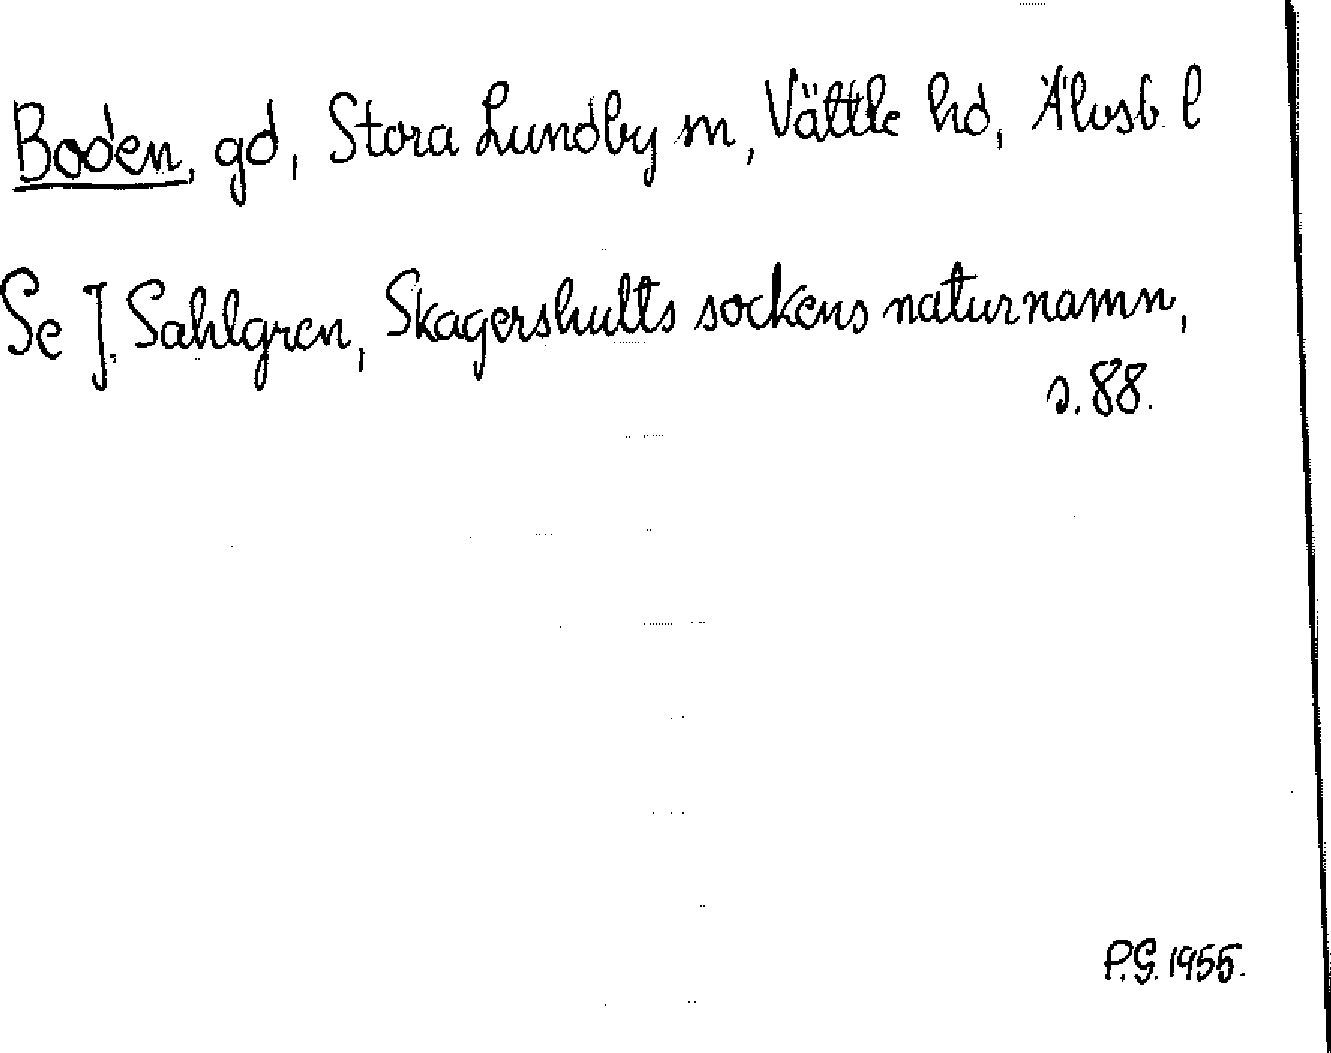 Boden, gd, Stora Lundby sn, Vättle hd, Älvsb. l
Se J. Sahlgren, Skagershults sockens naturnamn,
s. 88.
P.G. 1955.